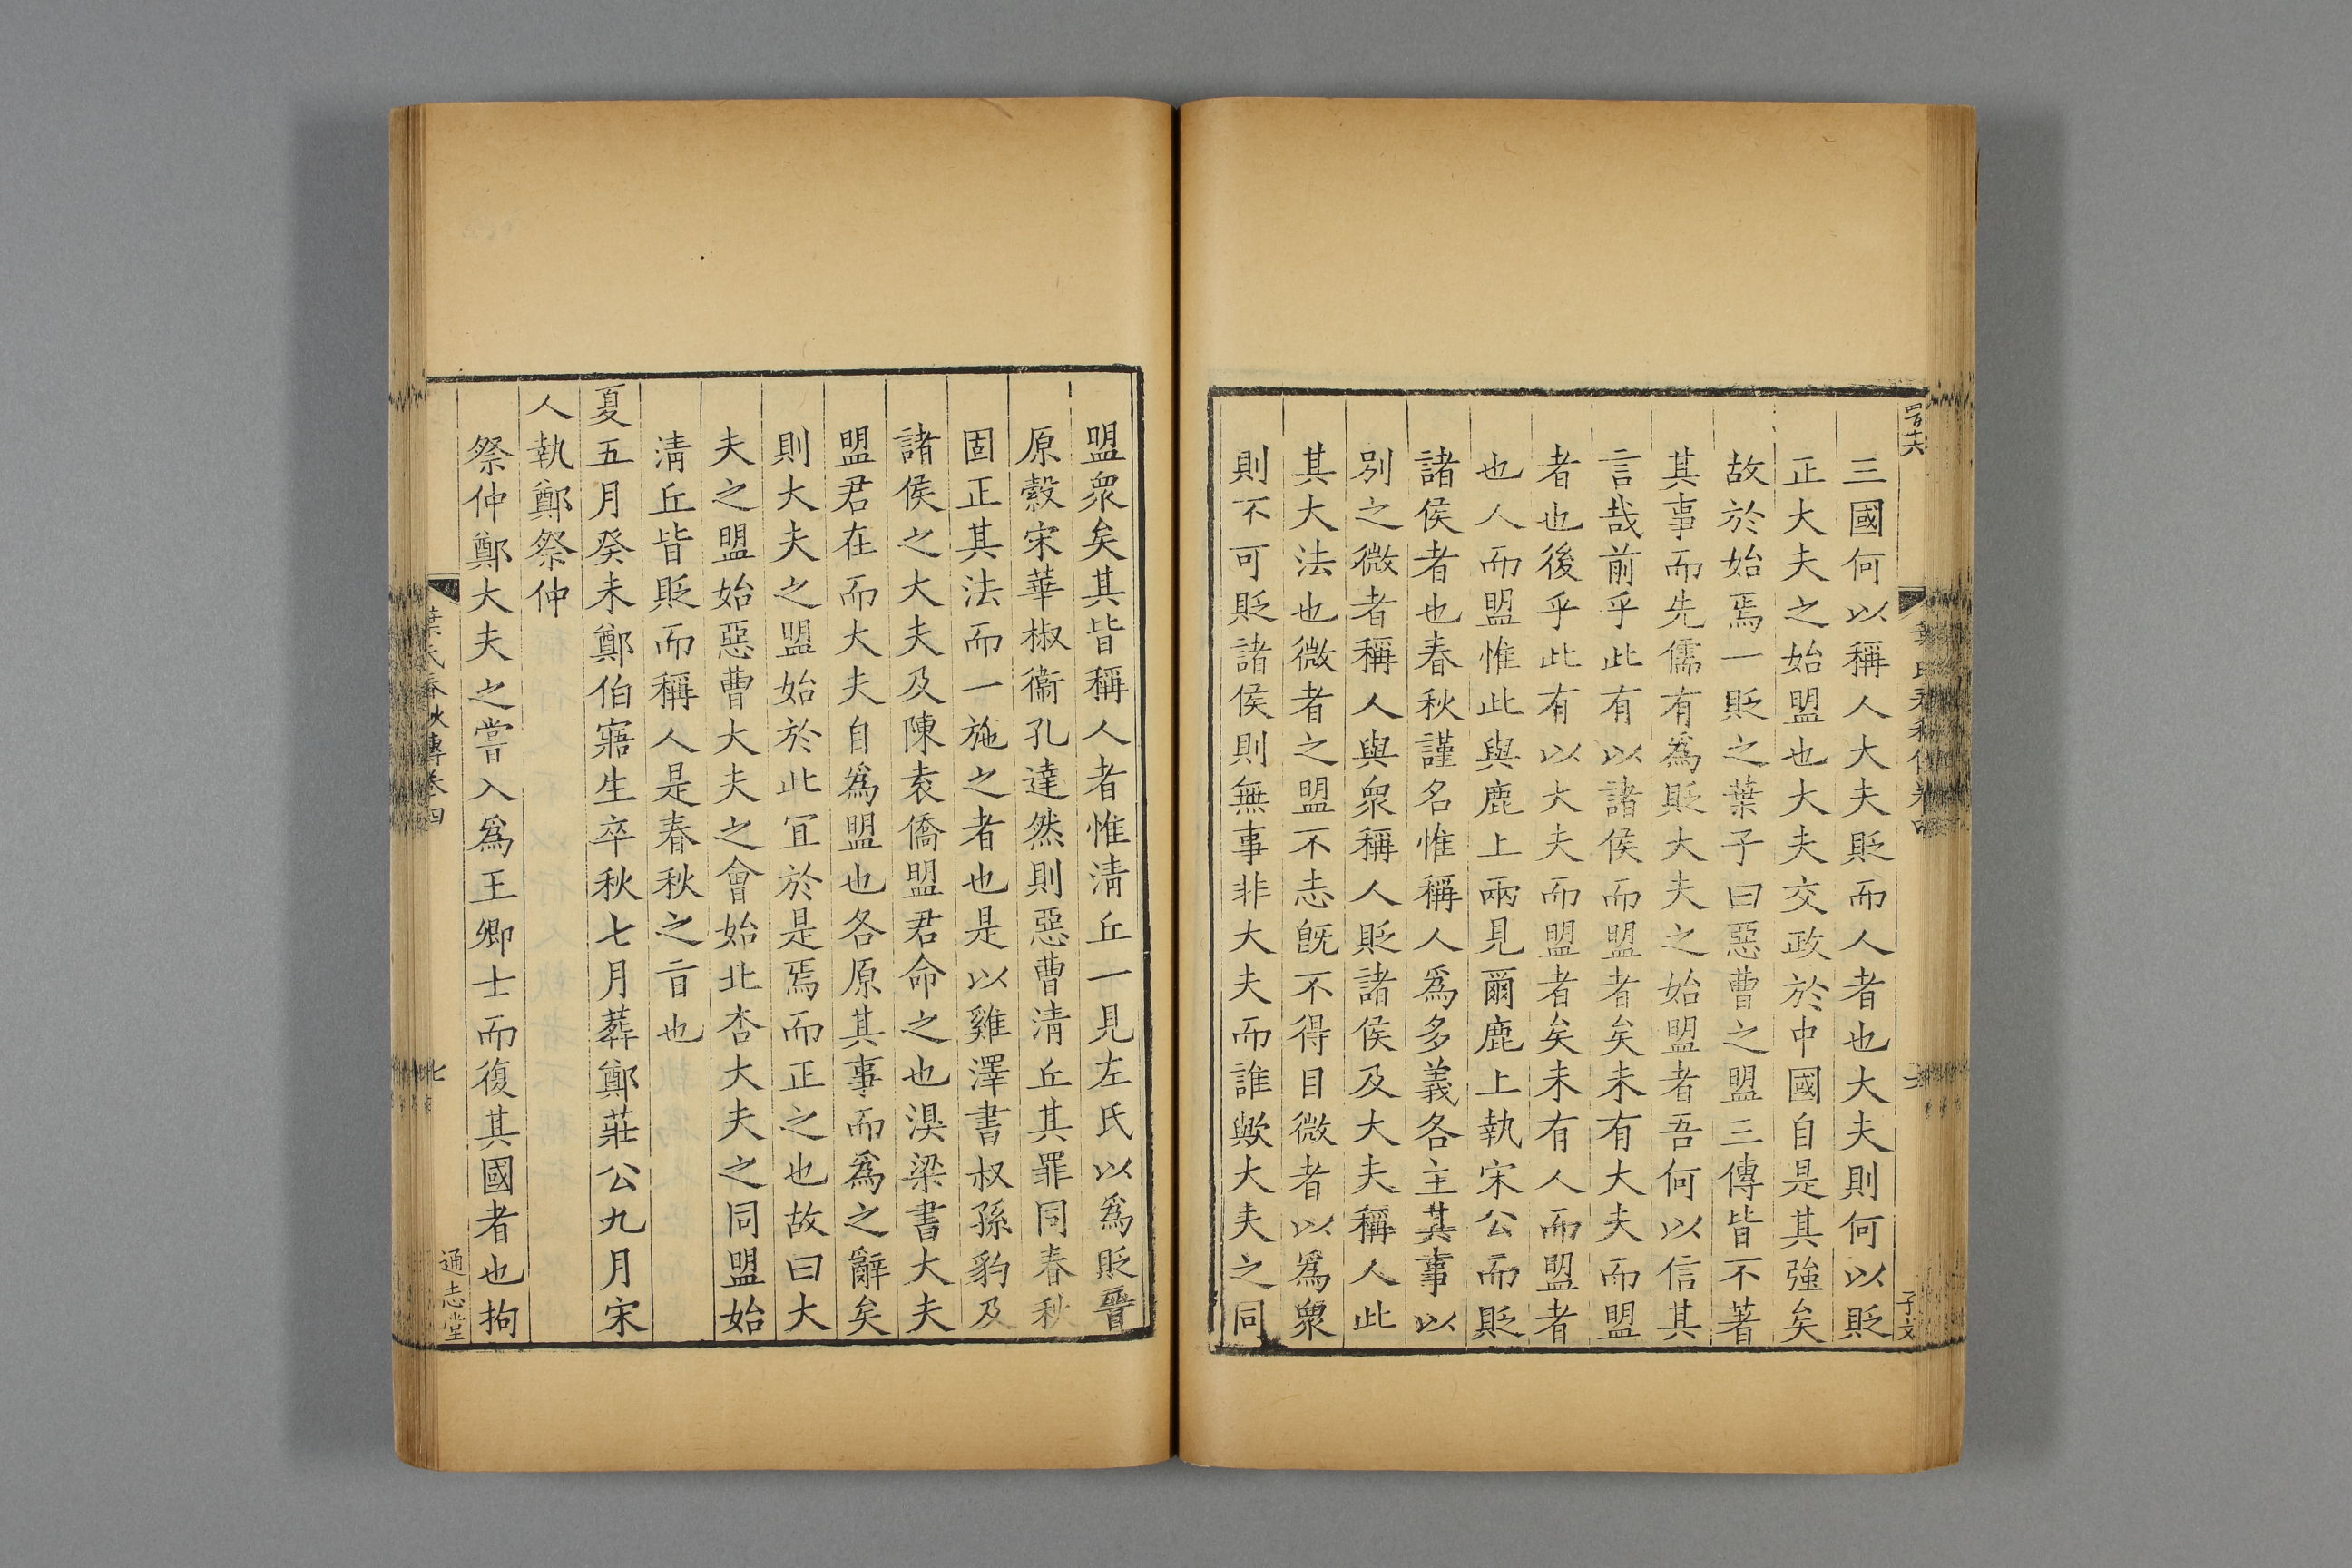 三國何以稱人大夫貶而人者也大夫則何以貶
正大夫之始盟也大夫交政於中國自是其強矣
故於始焉一貶之葉子曰惡曹之盟三傳皆不著
其事而先儒有爲貶大夫之始盟者吾何以信其
言哉前乎此有以諸侯而盟者矣未有大夫而盟
者也後乎此有以大夫而盟者矣未有人而盟者
也人而盟惟此與鹿上兩見爾鹿上執宋公而貶
諸侯者也春秋謹名惟稱人爲多義各主其事以
別之微者稱人與衆稱人貶諸侯及大夫稱人此
其大法也微者之盟不志旣不得目微者以爲衆
則不可貶諸侯則無事非大夫而誰歟大夫之同
盟衆矣其皆稱人者惟淸丘一見左氏以爲貶晉
原縠宋華椒衞孔達然則惡曹淸丘其罪同春秋
固正其法而一施之者也是以雞澤書叔孫豹及
諸侯之大夫及陳袁僑盟君命之也湨梁書大夫
盟君在而大夫自爲盟也各原其事而爲之辭矣
則大夫之盟始於此冝於是焉而正之也故曰大
夫之盟始惡曹大夫之會始北杏大夫之同盟始
淸丘皆貶而稱人是春秋之㫖也
夏五月癸未鄭伯寤生卒秋七月葬鄭莊公九月宋
人執鄭祭仲
祭仲鄭大夫之嘗入爲王卿士而復其國者也拘
葉氏春秋傳卷四
七
通志堂